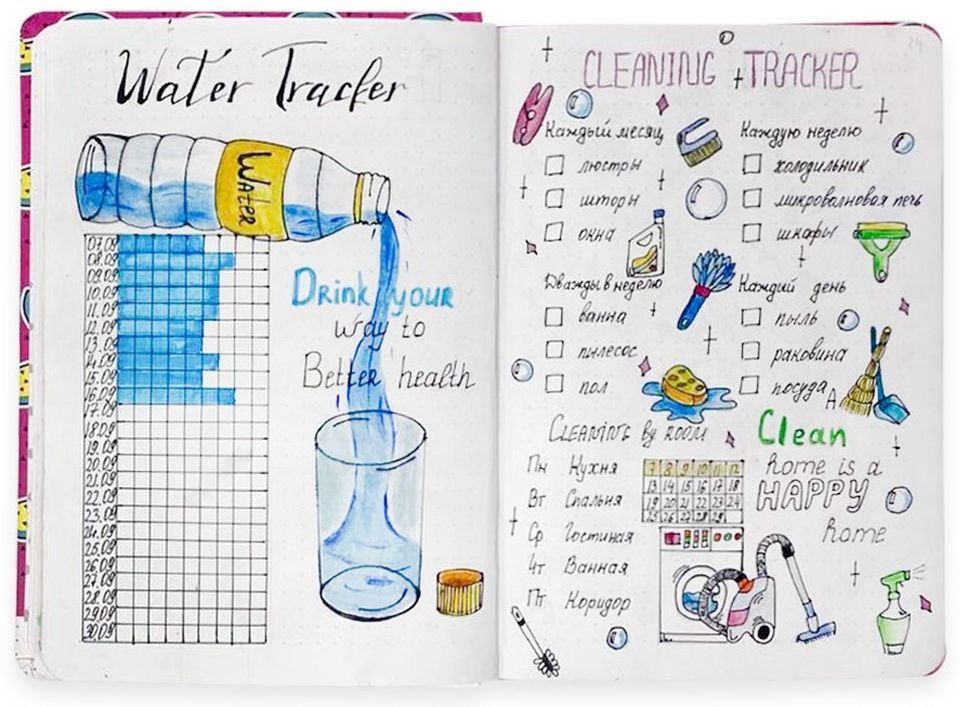 Water Tracker
Water
07.09
08.09
09.09
10.09
11.09
12.09
13.09
14.09
15.09
16.09
17.09
18.09
19.09
20.09
21.09
22.09
23.09
24.09
25.09
26.09
27.09
28.09
29.09
30.09
Drink your
way to
Better health
24
CLEANING TRACKER
Каждый месяц
люстры
шторы
окна
Каждую неделю
холодильник
микроволновая печь
шкафы
Дважды в неделю
ванна
пылесос
пол
Каждый день
пыль
раковина
посуда
CLEANING by ROOM
Пн Кухня
Вт Спальня
Ср Гостиная
Чт Ванная
Пт Коридор
7 8 9 10 11 12
13 14 15 16 17 18
19 20 21 22 23 24
25 26 27 28 29
A
Clean
home is a
HAPPY
home